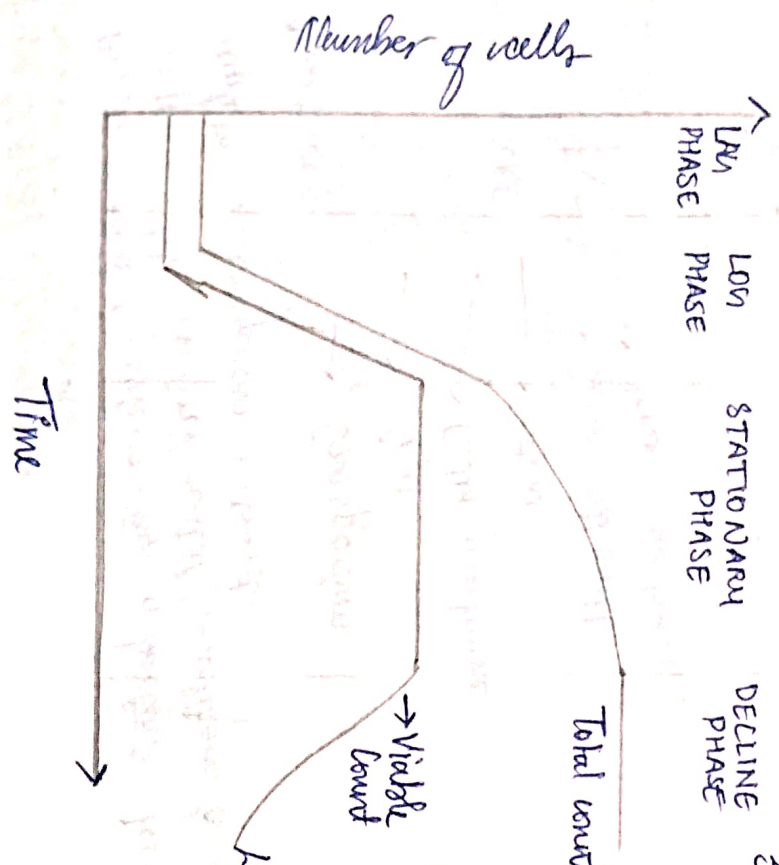 Number of cells
LAG
PHASE
LOG
PHASE
STATIONARY
PHASE
DECLINE
PHASE
Total count
→ Viable
Count
Time